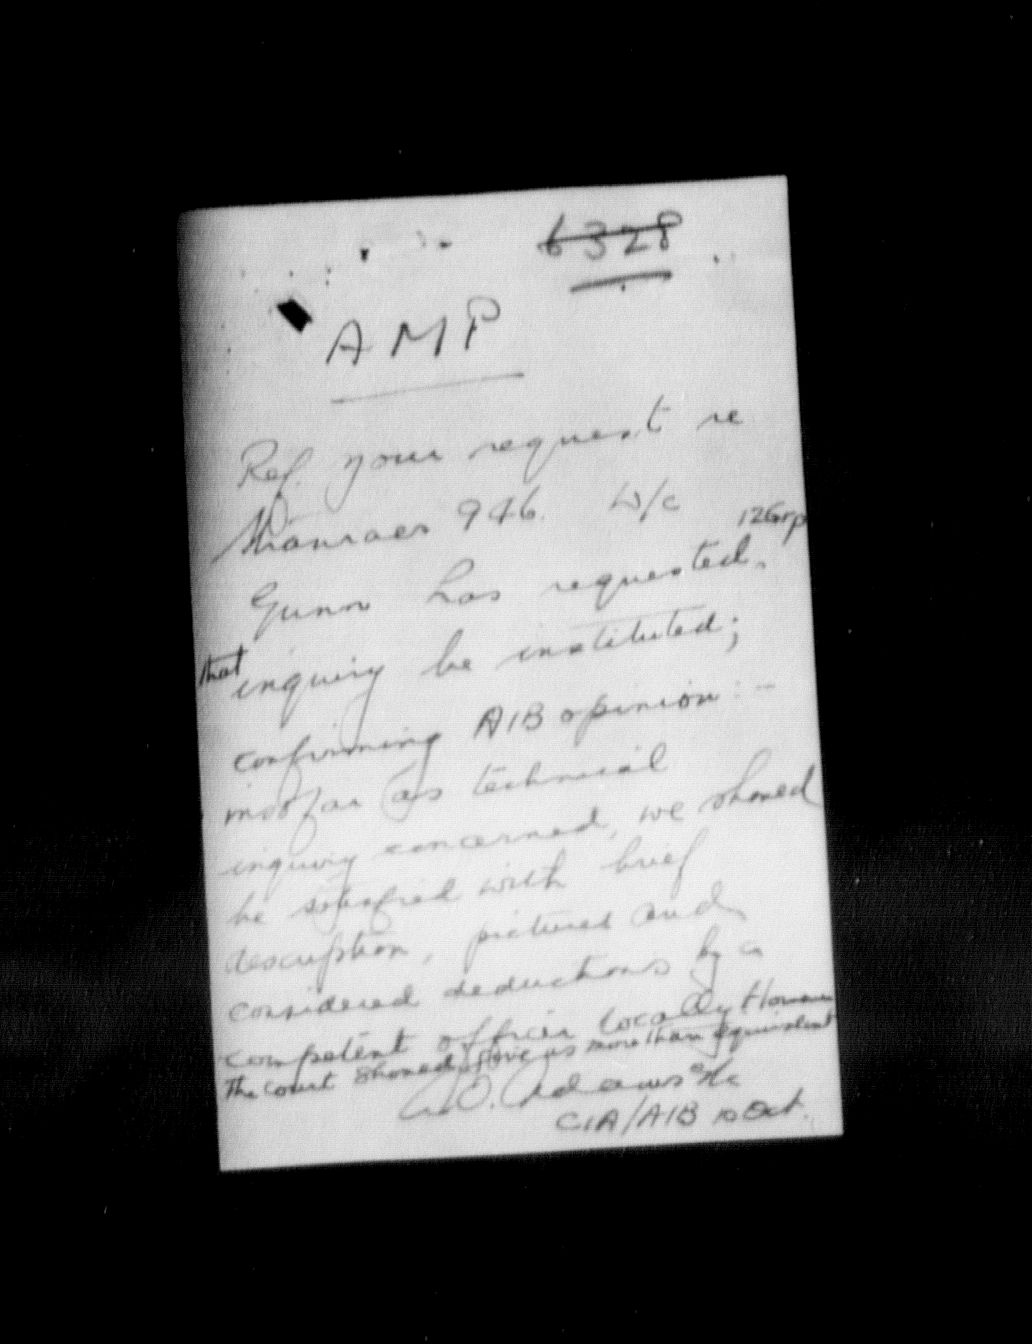 6328
AMP
Ref. your request re
946. W/c
Gunn has requested, 12Grp
that inquiry be instituted;
confirming AIB opinion :-
insofar as technical
inquiry concerned, we should
be satisfied with brief
description, pictures and
considered deductions by a
competent officer locally However
The court should give us more than equivalent
Adams W/c
CIA/AIB 10 Oct.